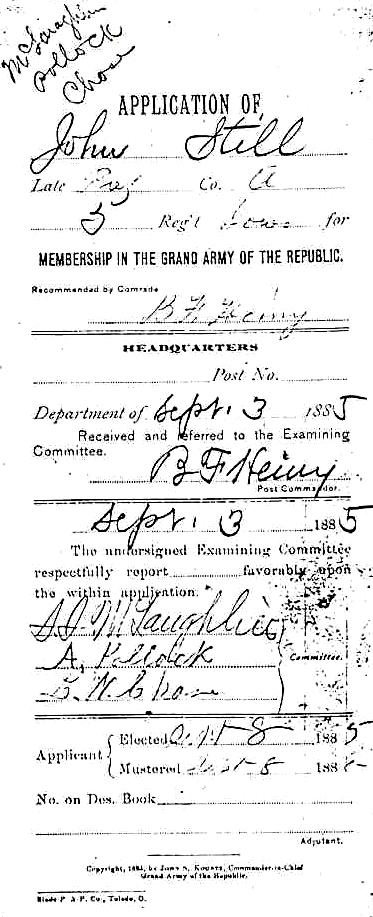 McLaughlin
Pollock
Chase
APPLICATION OF
John Still
Late Co. A
3 Reg't Iowa for
MEMBERSHIP IN THE GRAND ARMY OF THE REPUBLIC.
Recommended by Comrade
B F Heiny
HEADQUARTERS
Post No.
Department of Sept. 3 1885
Received and referred to the Examining
Committee.
B F Heiny
Post Commander.
Sept. 3 1885
The undersigned Examining Committee
respectfully report favorably upon
the within application.
McLaughlin
A, Pollock
Committee.
Chase
Applicant
Elected Sept 8 1885
Mustered Sept 8 188
No. on Des. Book
Adjutant.
Copyright, 1884, by JOHN S. KOUNTZ, Commander-in-Chief
Grand Army of the Republic.
Blade P. & P. Co., Toledo, O.